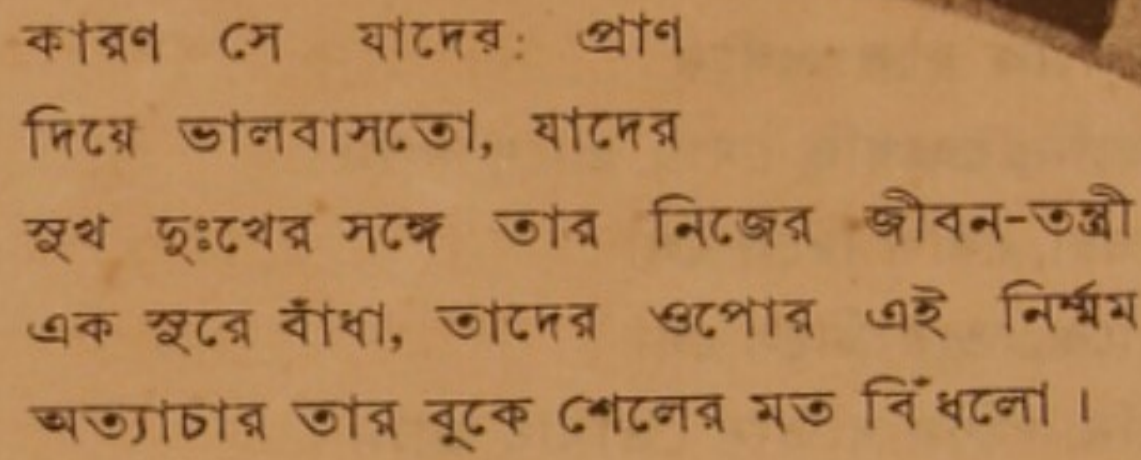 কারণ সে যাদের: প্রাণ
দিয়ে ভালবাসতো, যাদের
সুখ দুঃখের সঙ্গে তার নিজের জীবন-তন্ত্রী
এক সুরে বাঁধা, তাদের ওপোর এই নির্ম্মম
অত্যাচার তার বুকে শেলের মত বিঁধলো।